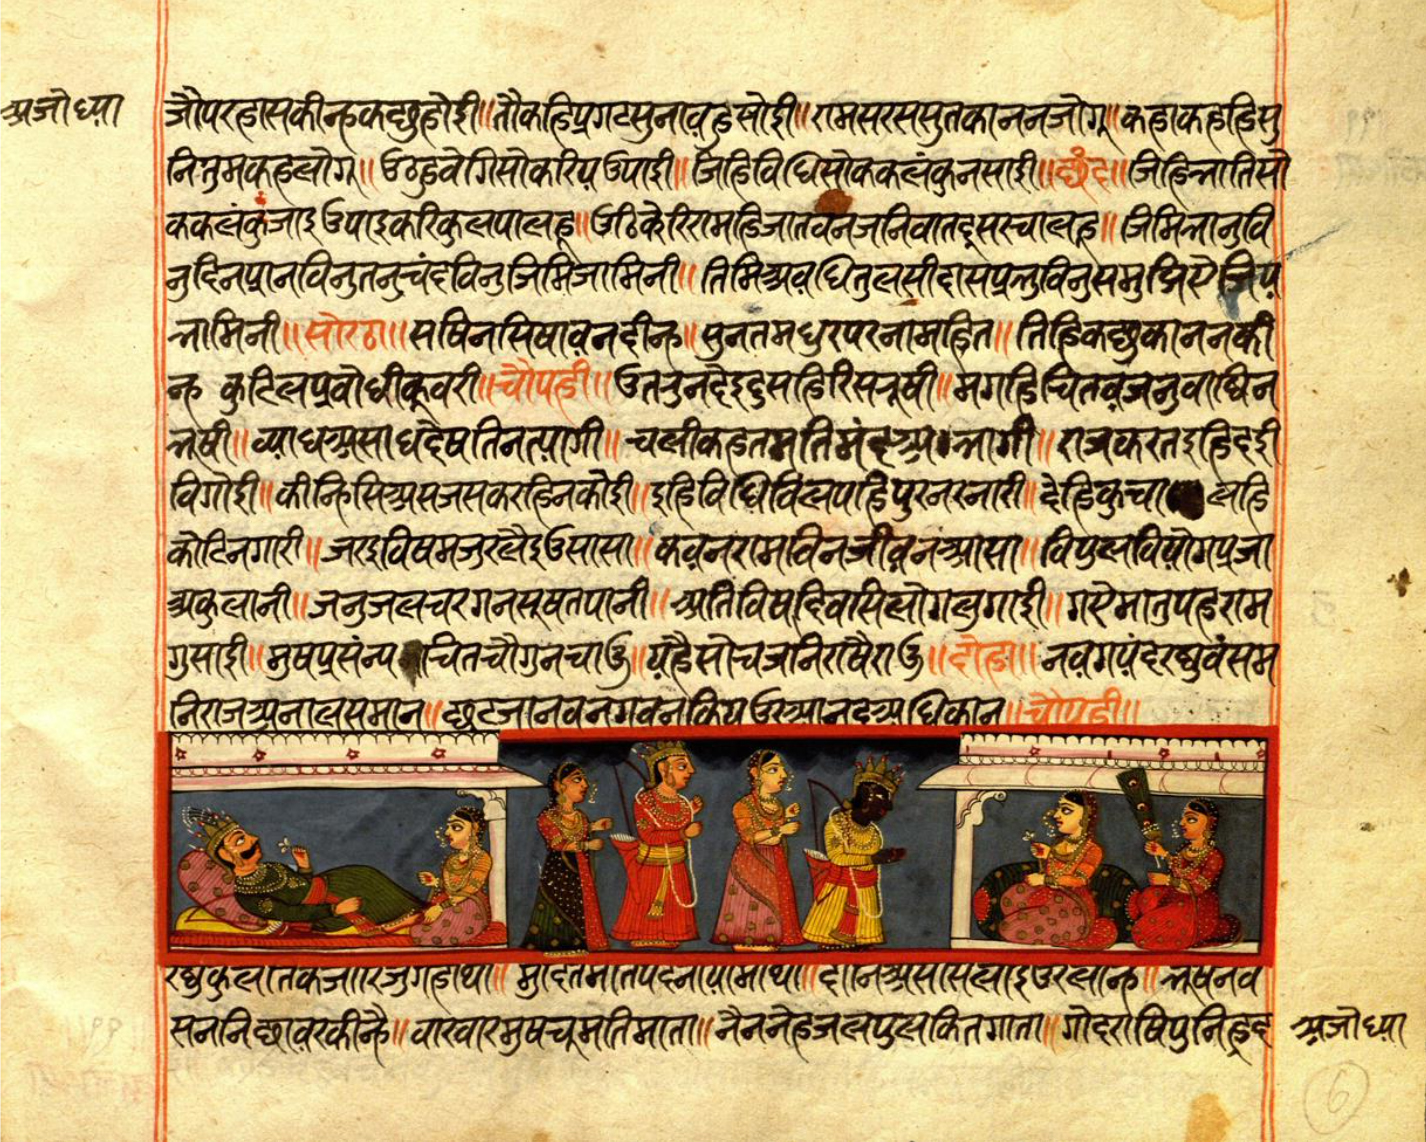 अजोध्या
जौपरहासकीन्हकछुहोई॥तौकहिप्रगटसुनावहुसोई॥रामसरससुतकाननजोगू॥कहाकहहिसु
नितुमकहलोगू॥उठहुवेगिसोकरियउपाई॥जिहिविधिसोककलंकुनसाई॥छंद॥जिहिभातिसो
ककलंकुजाइउपाइकरिकुलपालहू॥उठिफेरिरामहिजातवनजनिवातदूसरचालहू॥जिमिभानुवि
नुदिनप्रानविनुतनुचंदविनुजिमिजामिनी॥तिमिअवधितुलसीदासप्रभुविनुसमुझिऐजिय
भामिनी॥सोरठा॥सषिनसिषावनदीन्ह॥सुनतमधुरपरनामहित॥तिहिकछुकाननकी
न्ह कुटिलप्रवोधीकूवरी॥चौपही॥उतरुनदेइदुसहरिसरूषी॥मृगहिचितवजनुवाघिन
भूषी॥व्याधअसाधदेषतिनत्यागी॥चलीकहतमतिमंदअभागी॥राजकरतइहिदई
विगोई॥कीन्हिसिअसजसकरहिनकोई॥इहिविधिविलपहिपुरनरनारी॥देहिकुचालहि
कोटिनगारी॥जरइविषमजुरलैइउसासा॥कवनरामविनजीवनआसा॥विपुलवियोगप्रजा
अकुलानी॥जनुजलचरगनसूषतपानी॥अतिविषादवासिलोगलुगाई॥गऐमातुपहराम
गुसाई॥मुषप्रसंन्यचितचौगुनचाउ॥यहैसोचजनिराषैराउ॥दोहा॥नवगयंदरघुवंसम
निराजअनालसमान॥छुटजानवनगवनकियउरआनदअधिकान॥चौपही॥
रघुकुलतिकजोरिजुगहाथा॥मुदितमातपदनायोमाथा॥दीनिअसीसलाइउरलीन्ह॥भूषनव
सननिछावरकीन्है॥वारवारमुषचूमतिमाता॥नैननेहजलपुलकितगाता॥गोदराषिपुनिहृद
अजोध्या
6